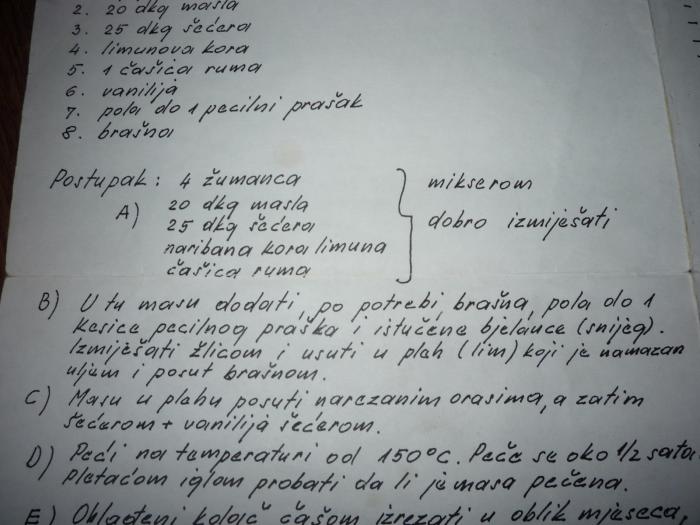 2. 20 dkg masla
3. 25 dkg šećera
4. limunova kora
5. 1 čašica ruma
6. vanilija
7. pola do 1 pecilni prašak
8. brašna
Postupak: 4 žumanca
A) 20 dkg masla
25 dkg šećera
naribana kora limuna
čašica ruma
mikserom
dobro izmiješati
B) U tu masu dodati, po potrebi, brašna, pola do 1
kesice pecilnog praška i istučene bjelance (snijeg).
Izmiješati žlicom i usuti u plah (lim) koji je namazan
uljem i posut brašnom.
C) Masu u plahu posuti narezanim orasima, a zatim
šećerom + vanilija šećerom.
D) Peći na temperaturi od 150°C. Peče se oko 1/2 sata.
Pletaćom iglom probati da li je masa pečena.
E) Ohlađeni kolač čašom izrezati u oblik mjeseca,